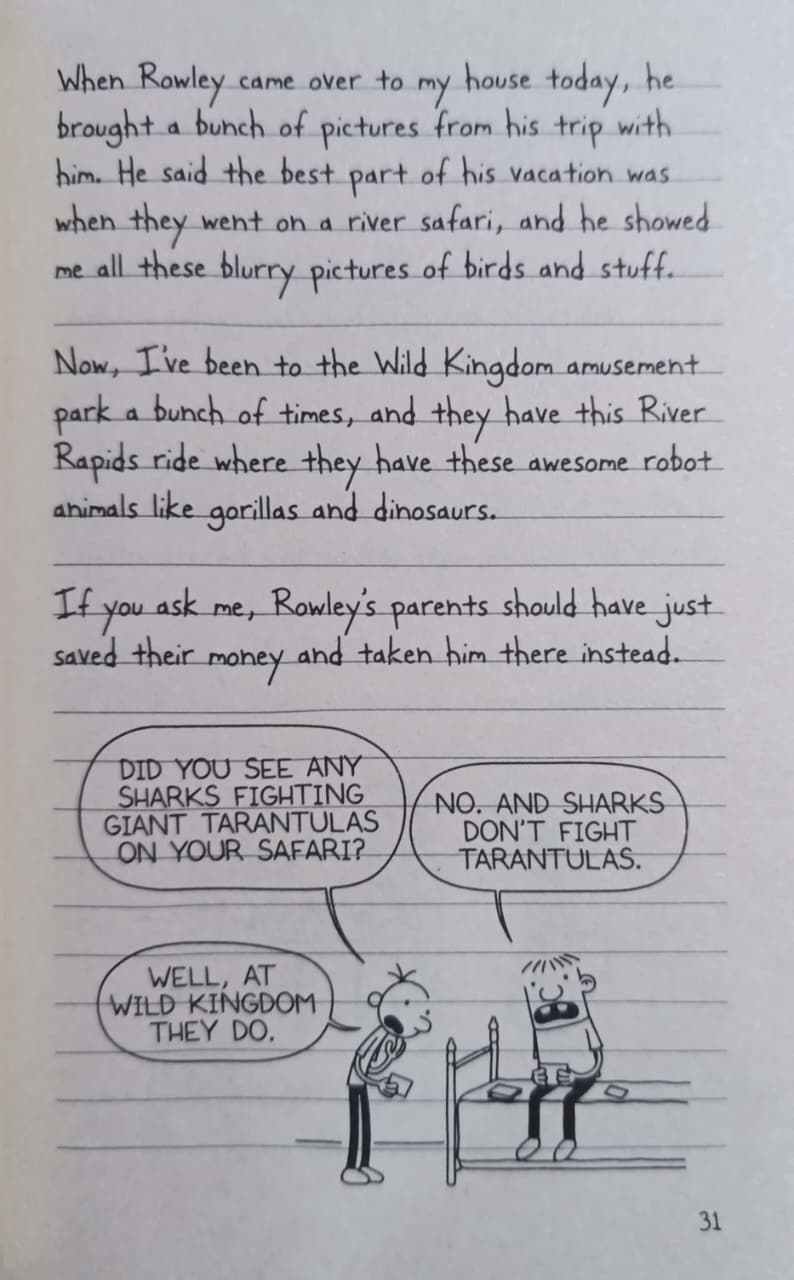 When Rowley came over to my house today, he
brought a bunch of pictures from his trip with
him. He said the best part of his vacation was
when they went on a river safari, and he showed
me all these blurry pictures of birds and stuff.
Now, I've been to the Wild Kingdom amusement
park a bunch of times, and they have this River
Rapids ride where they have these awesome robot
animals like gorillas and dinosaurs.
If you ask me, Rowley's parents should have just
saved their money and taken him there instead.
DID YOU SEE ANY
SHARKS FIGHTING
GIANT TARANTULAS
ON YOUR SAFARI?
NO. AND SHARKS
DON'T FIGHT
TARANTULAS.
WELL, AT
WILD KINGDOM
THEY DO.
31